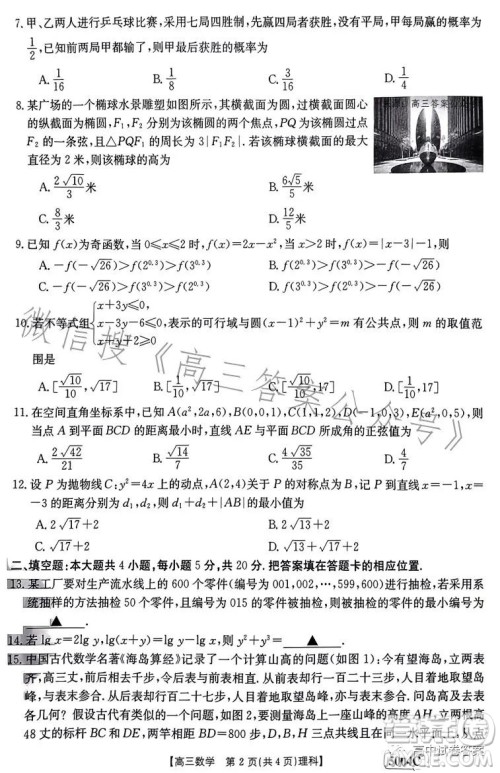 7. 甲、乙两人进行乒乓球比赛，采用七局四胜制，先赢四局者获胜，没有平局，甲每局赢的概率为
1/2，已知前两局甲都输了，则甲最后获胜的概率为
A. 1/16 B. 1/8 C. 3/16 D. 1/4
8. 某广场的一个椭球水景雕塑如图所示，其横截面为圆，过横截面圆心
的纵截面为椭圆，F₁，F₂ 分别为该椭圆的两个焦点，PQ 为该椭圆过点
F₂ 的一条弦，且△PQF₁ 的周长为 3|F₁F₂|. 若该椭球横截面的最大
直径为 2 米，则该椭球的高为
高三答案公
A. 2√10/3 米 B. 6√5/5 米
C. 8/3 米 D. 12/5 米
9. 已知 f(x)为奇函数，当 0≤x≤2 时，f(x)=2x−x²，当 x>2 时，f(x)=|x−3|−1，则
A. −f(−√26)>f(2^0.3)>f(3^0.3) B. f(2^0.3)>f(3^0.3)>−f(−√26)
C. −f(−√26)>f(3^0.3)>f(2^0.3) D. f(3^0.3)>f(2^0.3)>−f(−√26)
10. 若不等式组{x+3y≤0, x−3y−6≤0, x+y≥0 表示的可行域与圆(x−1)²+y²=m 有公共点，则 m 的取值范
围是
A. [√10/10, √17] B. [1/10, √17] C. [√10/10, 17] D. [1/10, 17]
11. 在空间直角坐标系中，已知 A(a²,2a,6)，B(0,0,1)，C(1,1,2)，D(−1,0,3)，E(a²,0,5)，则
当点 A 到平面 BCD 的距离最小时，直线 AE 与平面 BCD 所成角的正弦值为
A. 2√42/21 B. √14/7 C. 4√35/35 D. 4/7
12. 设 P 为抛物线 C:y²=4x 上的动点，A(2,4)关于 P 的对称点为 B，记 P 到直线 x=−1，x=
−3 的距离分别为 d₁，d₂，则 d₁+d₂+|AB|的最小值为
A. 2√17+2 B. 2√13+2
C. √17+2 D. √13+2
二、填空题：本大题共 4 小题，每小题 5 分，共 20 分. 把答案填在答题卡的相应位置.
13. 某工厂要对生产流水线上的 600 个零件(编号为 001,002,…,599,600)进行抽检，若采用系
统抽样的方法抽检 50 个零件，且编号为 015 的零件被抽检，则被抽检的零件的最小编号为
▲ .
14. 若 lg x=2lg y, lg(x+y)=lg y−lg x，则 y²+y³= ▲ .
15. 中国古代数学名著《海岛算经》记录了一个计算山高的问题(如图 1)：今有望海岛，立两表
齐，高三丈，前后相去千步，令后表与前表相直. 从前表却行一百二十三步，人目着地取望岛
峰，与表末参合. 从后表却行一百二十七步，人目着地取望岛峰，亦与表末参合. 问岛高及去表
各几何？假设古代有类似的一个问题，如图 2，要测量海岛上一座山峰的高度 AH，立两根高
48 丈的标杆 BC 和 DE，两竿相距 BD=800 步，
【高三数学 第 2 页(共 4 页)理科】
5004C
微信搜《高三答案公众号》
高中试卷答案